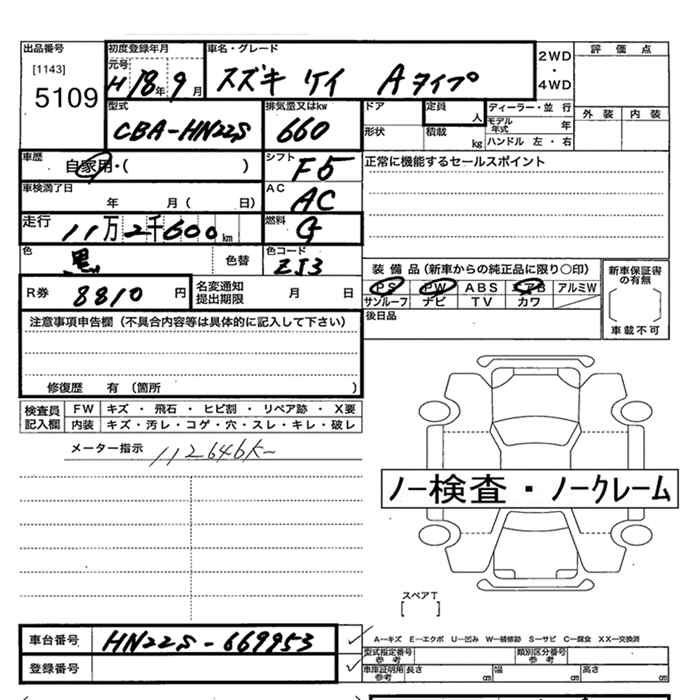 出品番号
[1143]
5109
初度登録年月
元号
H 18 年 9 月
車名・グレード
スズキ ケイ Aタイプ
2WD
・
4WD
評価点
外装 内装
型式
CBA-HN22S
排気量又はkw
660
ドア
形状
定員
人
積載
kg
ディーラー・並行
モデル年式 年
ハンドル 左・右
車歴
自家用・( )
シフト
F5
正常に機能するセールスポイント
車検満了日
年 月( 日)
AC
AC
走行
11万2千600km
燃料
G
色
黒
色替
色コード
ZJ3
装備品(新車からの純正品に限り○印)
PS PW ABS エアB アルミW
サンルーフ ナビ TV カワ
新車保証書の有無
( )
車載不可
R券
8810円
名変通知
提出期限
月 日
後日品
注意事項申告欄(不具合内容等は具体的に記入して下さい)
修復歴 有(箇所 )
検査員
記入欄
FW キズ・飛石・ヒビ割・リペア跡・X要
内装 キズ・汚レ・コゲ・穴・スレ・キレ・破レ
メーター指示 112646K
ノー検査・ノークレーム
スペアT
[ ]
車台番号
HN22S-669953
登録番号
A―キズ E―エクボ U―凹み W―補修跡 S―サビ C―腐食 XX―交換済
型式指定番号
参考
類別区分番号
参考
車庫証明用
参考
長さ cm 幅 cm 高さ cm